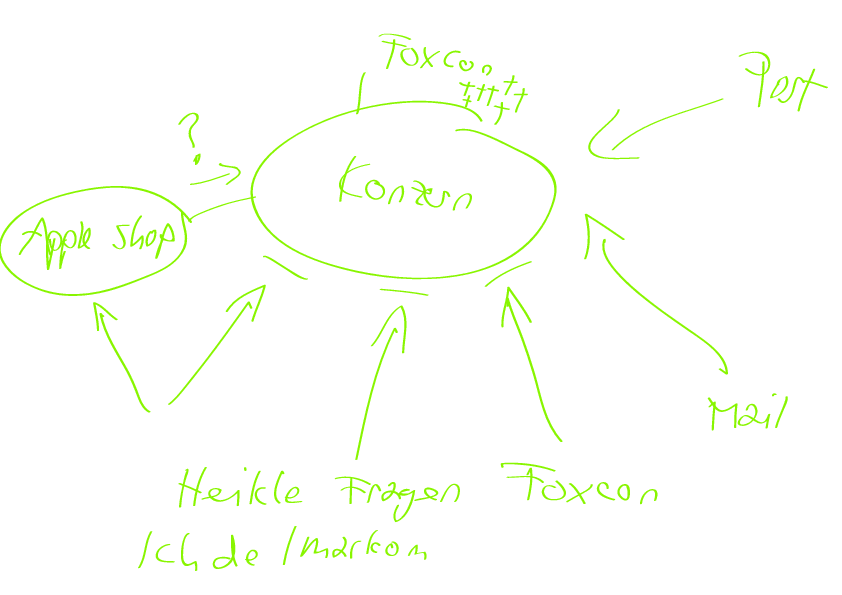 Foxcon
Post
?
Konzern
Apple Shop
Mail
Heikle Fragen
Foxcon
Ich de / markom